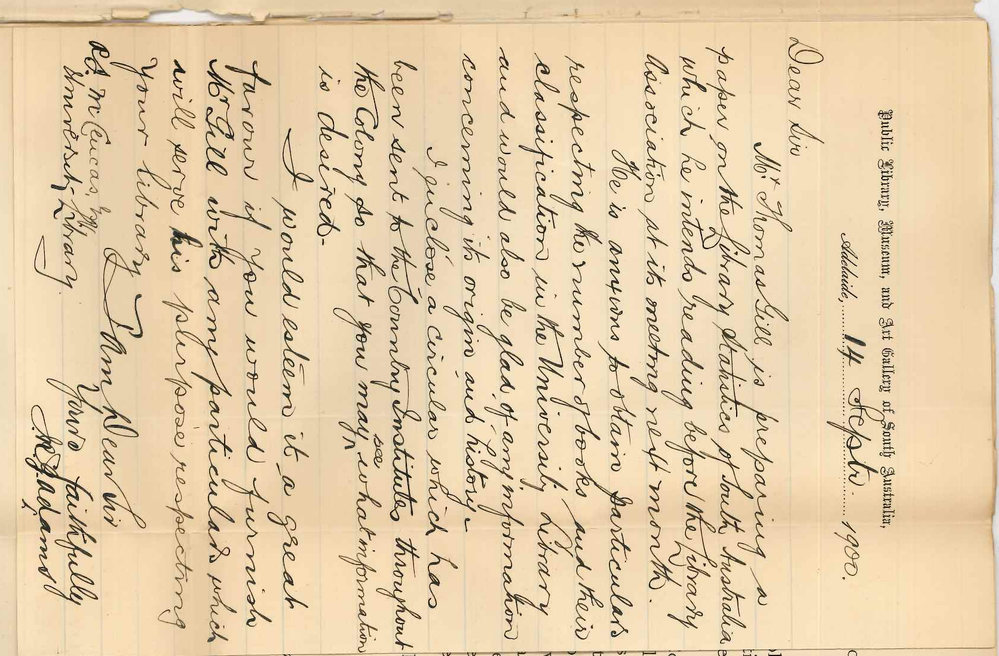 Public Library, Museum, and Art Gallery of South Australia,
Adelaide, 14 Septr. 1900.
Dear Sir
Mr Thomas Gill is preparing a
paper on the Library Statistics of South Australia
which he intends reading before the Library
Association at its meeting next month.
He is anxious to obtain particulars
respecting the number of books and their
classification in the University Library
and would also be glad of any information
concerning its origin and history.
I enclose a circular which has
been sent to the Country Institutes throughout
the Colony so that you may see what information
is desired.
I would esteem it a great
favour if you would furnish
Mr Gill with any particulars which
will serve his purpose respecting
your library
I am Dear Sir
Yours faithfully
J R G Adams
University Library.